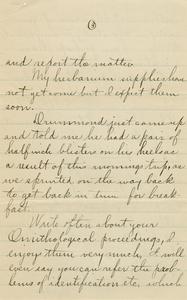 3
and report the matter.
My herbarium supplies have
not yet come but I expect them
soon.
Drummond just came up
and told me he had a pair of
half inch blisters on his heels as
a result of this mornings trip, as
we sprinted on the way back
to get back in time for break-
fast.
Write often about your
Ornithological proceedings, I
enjoy them very much, I will
even say you can refer the prob-
lems of identification etc. which